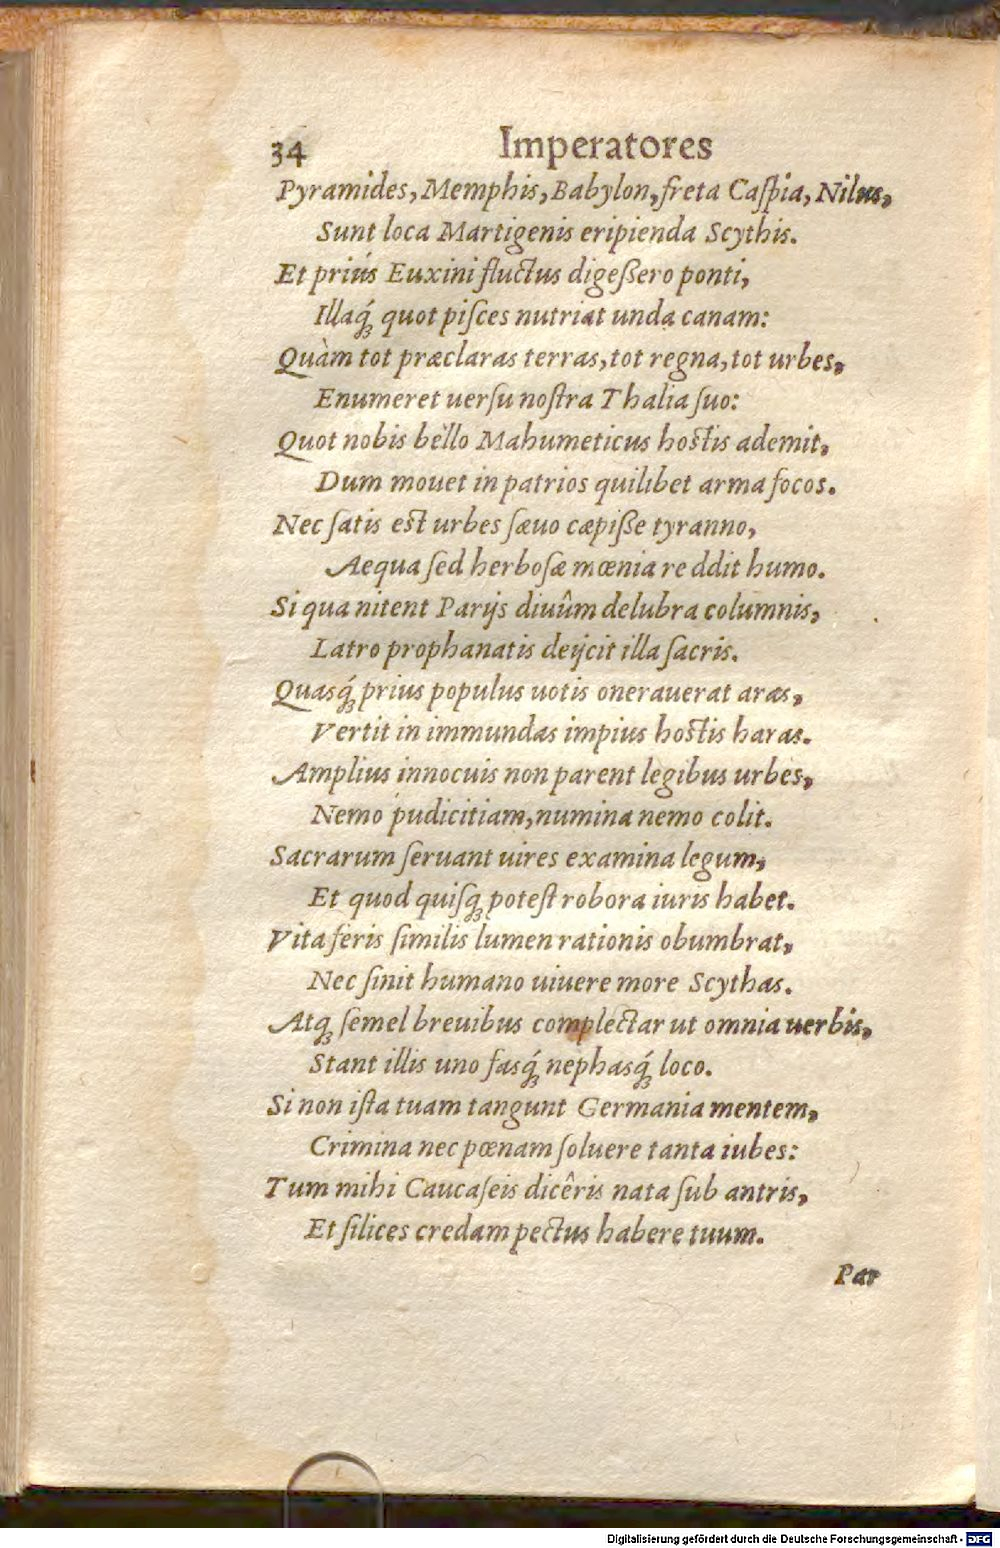 34 Imperatores
Pyramides, Memphis, Babylon, freta Caſpia, Nilus,
Sunt loca Martigenis eripienda Scythis.
Et priús Euxini fluctus digeßero ponti,
Illaq́; quot piſces nutriat unda canam:
Quàm tot præclaras terras, tot regna, tot urbes,
Enumeret uerſu noſtra Thalia ſuo:
Quot nobis bello Mahumeticus hoſtis ademit,
Dum mouet in patrios quilibet arma focos.
Nec ſatis eſt urbes ſæuo cæpiße tyranno,
Aequa ſed herboſæ mœnia re ddit humo.
Si qua nitent Parijs diuûm delubra columnis,
Latro prophanatis deijcit illa ſacris.
Quasq́; prius populus uotis onerauerat aras,
Vertit in immundas impius hoſtis haras.
Amplius innocuis non parent legibus urbes,
Nemo pudicitiam, numina nemo colit.
Sacrarum ſeruant uires examina legum,
Et quod quiſq; poteſt robora iuris habet.
Vita feris ſimilis lumen rationis obumbrat,
Nec ſinit humano uiuere more Scythas.
Atq; ſemel breuibus complectar ut omnia uerbis,
Stant illis uno fasq́; nephasq́; loco.
Si non iſta tuam tangunt Germania mentem,
Crimina nec pœnam ſoluere tanta iubes:
Tum mihi Caucaſeis dicêris nata ſub antris,
Et ſilices credam pectus habere tuum.
Par
Digitalisierung gefördert durch die Deutsche Forschungsgemeinschaft - DFG